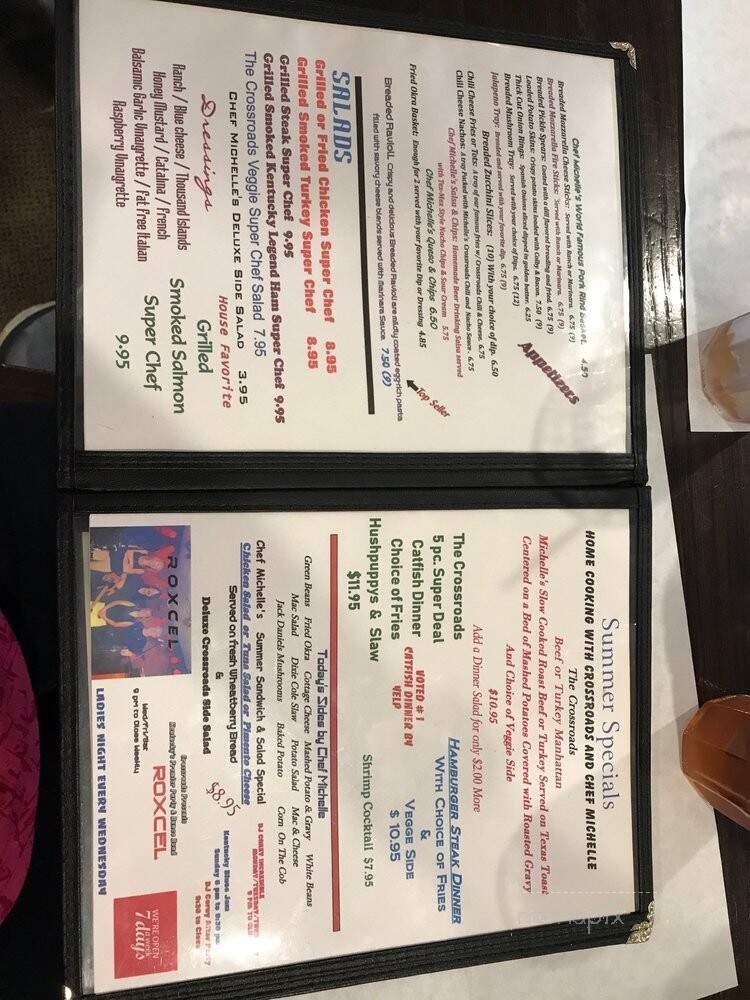 Chef Michelle's World Famous Pork Rind Basket 4.50
Breaded Mozzarella Cheese Sticks: Served with Ranch or Marinara. 6.75 (9)
Breaded Mozzarella Fire Sticks: Served with Ranch or Marinara. 6.75 (9)
Breaded Pickle Spears: Coated with a dill flavored breading and fried. 6.75 (9)
Loaded Potato Skins: Crispy potato skins loaded with Colby & Bacon. 7.50 (9)
Thick Cut Onion Rings: Spanish Onions sliced dipped in golden batter. 6.25
Breaded Mushroom Tray: Served with your choice of Dips. 6.75 (12)
Jalapeno Tray: Breaded and served with your favorite dip. 6.75 (9)
Appetizers
Breaded Zucchini Slices: (10) With your choice of dip. 6.50
Chili Cheese Fries or Tots: A tray of our famous fries w/ Crossroads Chili & Cheese. 6.75
Chili Cheese Nachos: A tray Packed with Michelle's Crossroads Chili and Nacho Sauce. 6.75
Chef Michelle's Salsa & Chips: Homemade Beer Drinking Salsa served
with Tex-Mex Style Nacho Chips & Sour Cream 5.75
Chef Michelle's Queso & Chips 6.50
Fried Okra Basket: Enough for 2 served with your favorite Dip or Dressing 4.85
Top Seller
Breaded Ravioli: Crispy and delicious Breaded Ravioli are mildly coated egg-rich pasta
filled with savory cheese blends served with Marinara Sauce. 7.50 (9)
SALADS
Grilled or Fried Chicken Super Chef 8.95
Grilled Smoked Turkey Super Chef 8.95
Grilled Steak Super Chef 9.95
Grilled Smoked Kentucky Legend Ham Super Chef 9.95
The Crossroads Veggie Super Chef Salad 7.95
Chef Michelle's Deluxe Side Salad 3.95
House Favorite
Dressings
Ranch / Blue cheese / Thousand Islands
Honey Mustard / Catalina / French
Balsamic Garlic Vinaigrette / Fat Free Italian
Raspberry Vinaigrette
Grilled
Smoked Salmon
Super Chef
9.95
Summer Specials
HOME COOKING WITH CROSSROADS AND CHEF MICHELLE
The Crossroads
Beef or Turkey Manhattan
Michelle's Slow Cooked Roast Beef or Turkey Served on Texas Toast
Centered on a Bed of Mashed Potatoes Covered with Roasted Gravy
And Choice of Veggie Side
$10.95
Add a Dinner Salad for only $2.00 More
The Crossroads
5 pc. Super Deal
Catfish Dinner
Choice of Fries
Hushpuppys & Slaw
$11.95
VOTED # 1
CATFISH DINNER BY
YELP
Hamburger Steak Dinner
With Choice of Fries
&
Vegge Side
$ 10.95
Shrimp Cocktail $7.95
Today's Sides by Chef Michelle
Green Beans Fried Okra Cottage Cheese Mashed Potato & Gravy White Beans
Mac Salad Dixie Cole Slaw Potato Salad Mac & Cheese
Jack Daniels Mushrooms Baked Potato Corn On The Cob
Chef Michelle's Summer Sandwich & Salad Special
Chicken Salad or Tuna Salad or Pimento Cheese
Served on fresh Wheatberry Bread
&
Deluxe Crossroads Side Salad
$8.95
ROXCEL
Crossroads Presents
ROXCEL
Kentucky's Premier Party & Dance Band
Wed/Fri/Sat
9 pm to Close Weekly
LADIES NIGHT EVERY WEDNESDAY
DJ COREY INCREDIBLE
Kentucky Blues Jam
Sunday 6 pm to 9:30 pm
DJ Corey After Party
9:30 to Close
WE'RE OPEN
7 days
a week